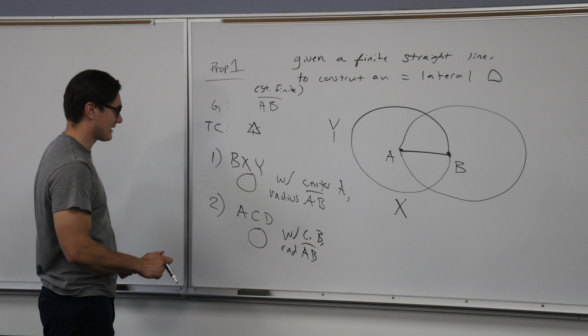 Prop 1
given a finite straight line,
to construct an = lateral △
(st. finite)
G: AB
TC: △
1) BXY
○ w/ center A,
radius AB
2) ACD
○ w/ C. B,
rad AB
Y
A
B
X